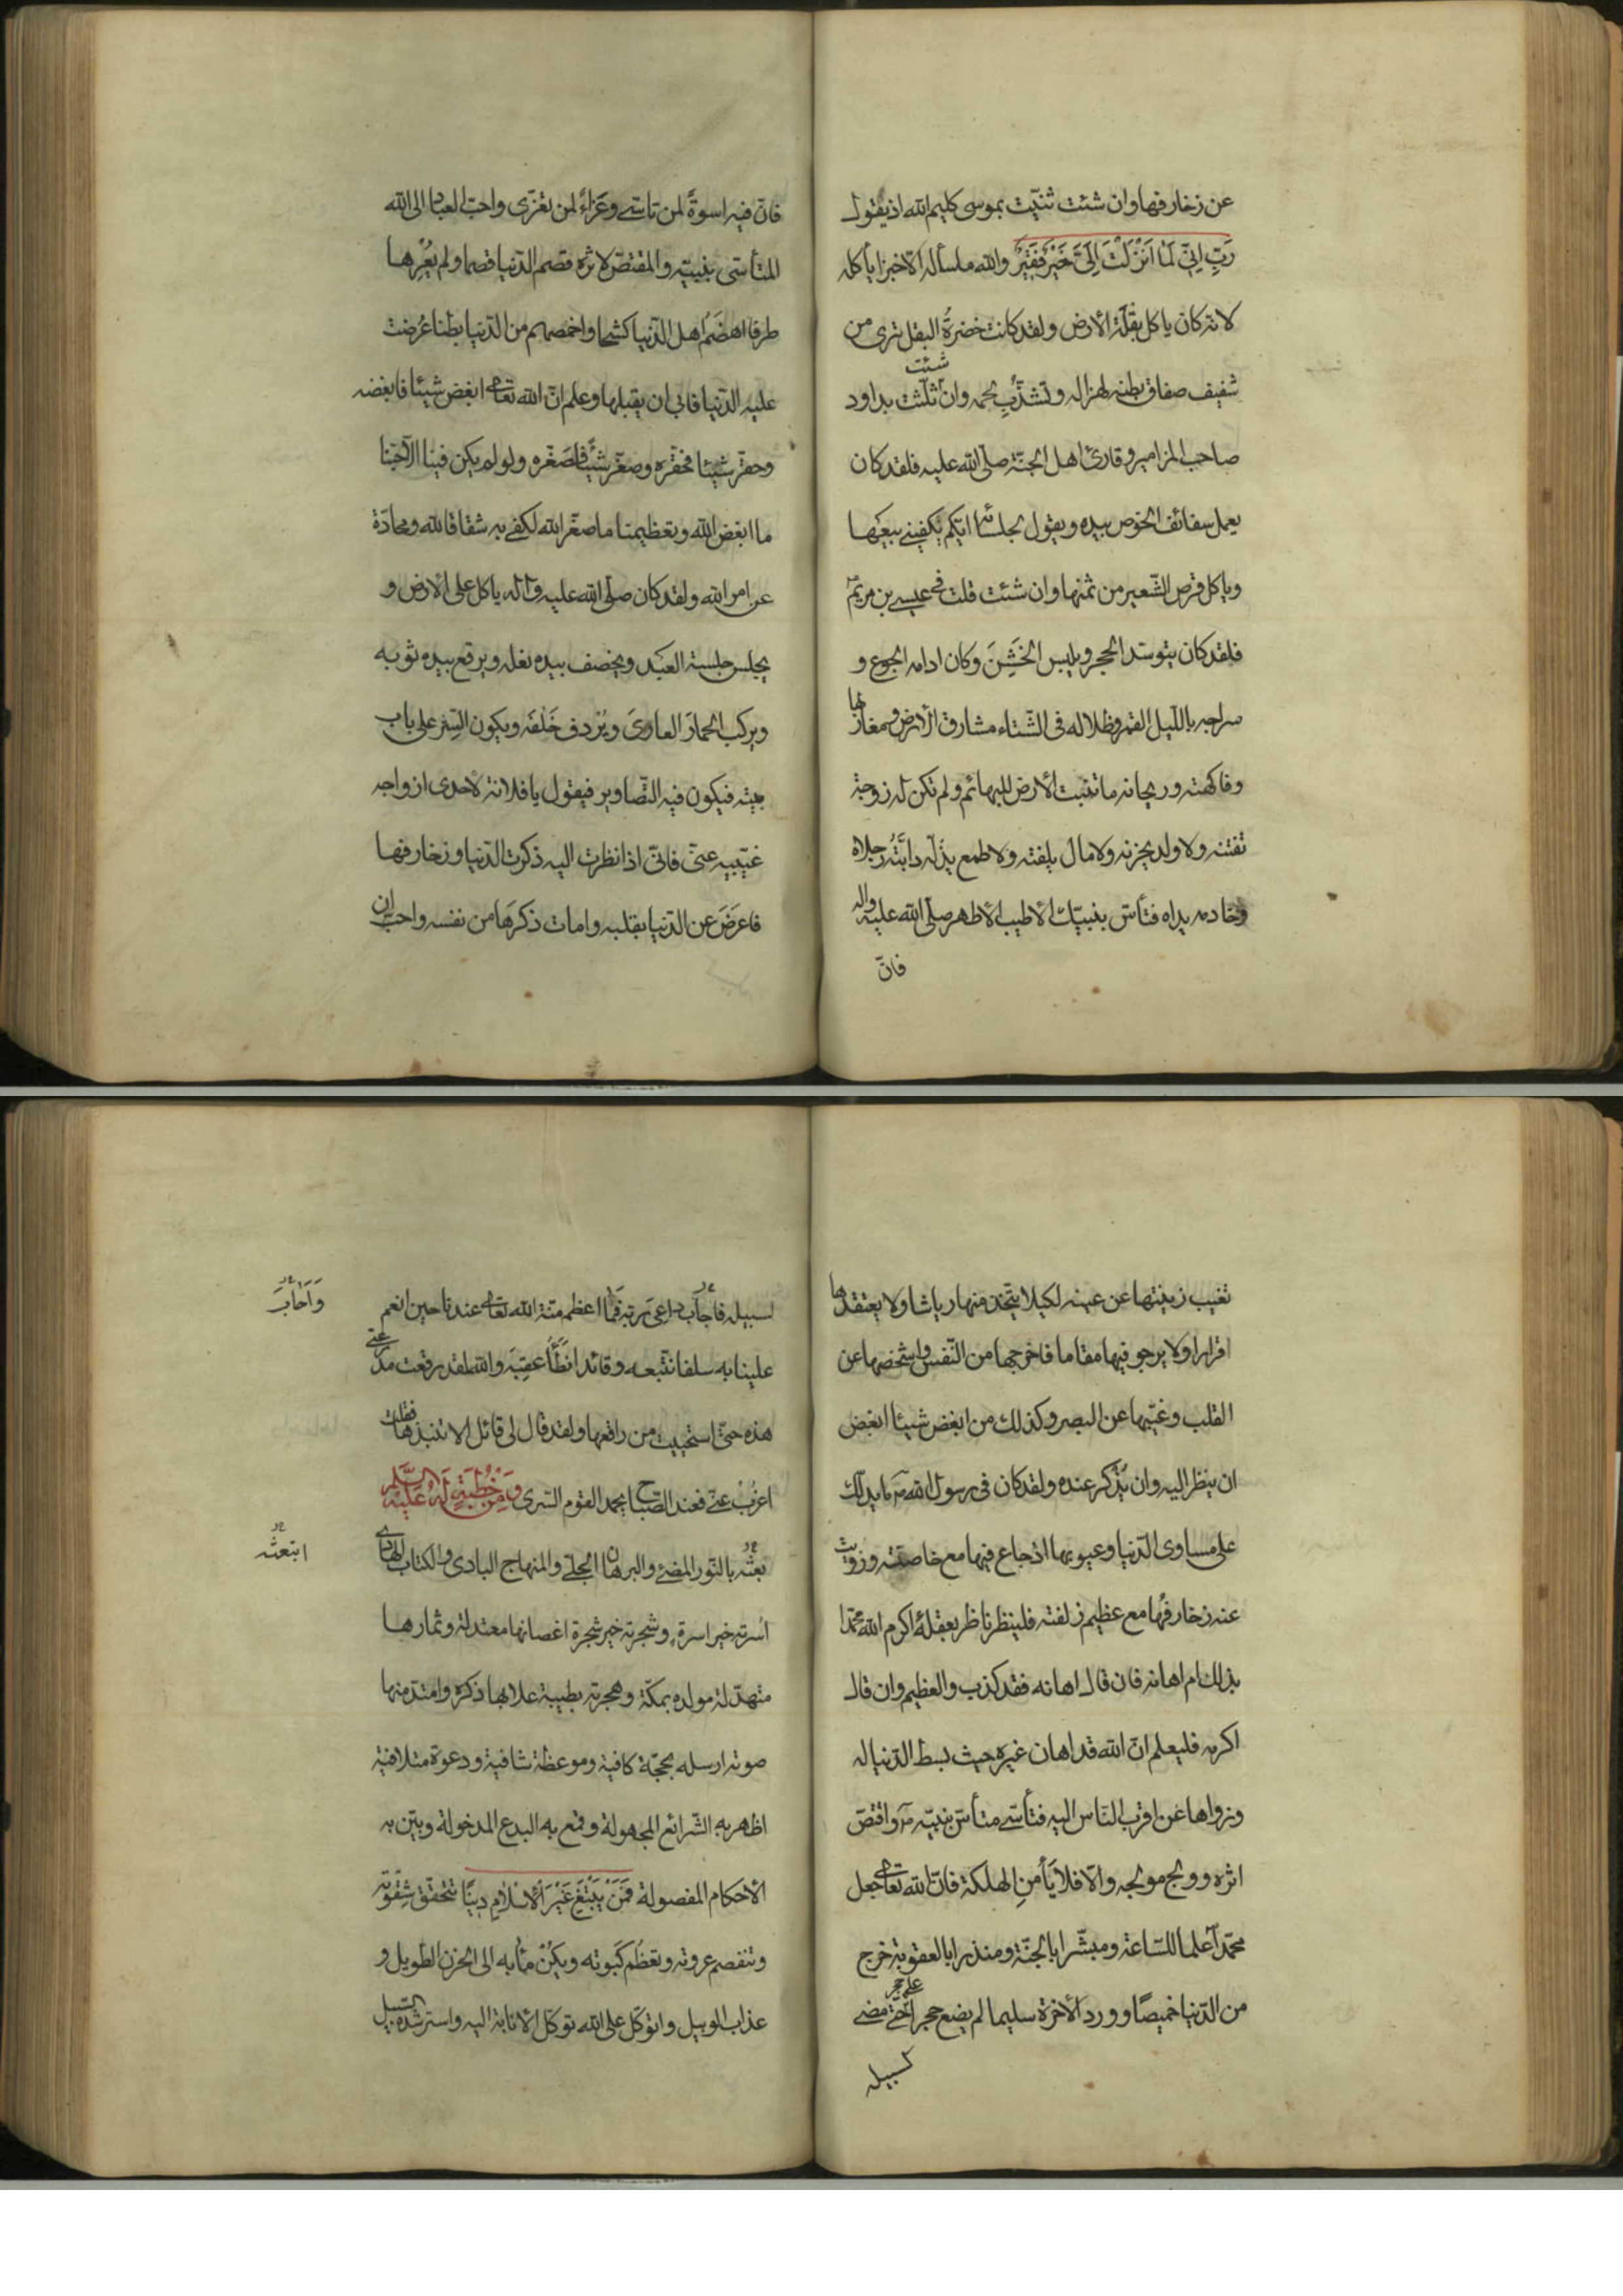 عن زخارفها وان شئت ثنّيت بموسى كليم الله اذ يقول
رَبِّ اِنِّي لَمَا اَنْزَلْتَ اِلَيَّ خَيْرٍ فَقِيْرٌ والله ما سأله الّا خبزا يأكله
لانه كان ياكل بقلة الارض ولقد كانت خضرةُ البقل ترى من
شفيف صفاق بطنه لهزاله وتشذّبِ لحمه وان شئت ثلّثت بداود
صاحب المزامير وقارئ اهل الجنّة صلّى الله عليه فلقد كان
يعمل سفائف الخوص بيده ويقول لجلسائه ايّكم يكفيني بيعها
وياكل قرص الشّعير من ثمنها وان شئت قلت في عيسى بن مريم
فلقد كان يتوسّد الحجر ويلبس الخَشِنَ وكان ادامه الجوع و
سراجه باللّيل القمر وظلاله في الشّتاء مشارق الارض ومغاربها
وفاكهته وريحانه ما تنبت الارض للبهائم ولم تكن له زوجة
تفتنه ولا ولد يحزنه ولا مال يلفته ولا طمع يذلّه دابّتُه رجلاه
وخادمه يداه فتأسّ بنبيّك الاطيب الاطهر صلّى الله عليه واله
فانّ
فانّ فيه اسوةً لمن تاسّى وعَزاءً لمن تعزّى واحبّ العباد الى الله
المتأسّى بنبيّه والمقتصّ لاثره قصم الدّنيا قصما ولم يُعِرها
طرفا اهضَمُ اهل الدّنيا كشحا واخمصهم من الدّنيا بطنا عُرضت
عليه الدّنيا فابى ان يقبلها وعلم انّ الله تعالى ابغض شيئا فابغضه
وحقّر شيئا فحقّره وصغّر شيئًا فصَغّره ولو لم يكن فينا الّا حبّنا
ما ابغض الله وتعظيمنا ما صغّر الله لكفى به شقاقا لله ومحادّة
عن امر الله ولقد كان صلّى الله عليه وآله ياكل على الارض و
يجلس جلسة العبد ويخصف بيده نعله ويرقع بيده ثوبه
ويركب الحمارَ العارىَ ويُردف خَلفَه ويكون السِّتر على باب
بيته فيكون فيه التّصاوير فيقول يا فلانة لاحدى ازواجه
غيّبيه عنّى فانّى اذا نظرت اليه ذكرت الدّنيا وزخارفها
فاعرَضَ عن الدّنيا بقلبه وامات ذكرَها من نفسه واحبّ ان
تغيب زينتها عن عينه لكيلا يتّخذ منها رياشا ولا يعتقدها
اقرارا ولا يرجو فيها مقاما فاخرجها من النّفس واشخصها عن
القلب وغيّبها عن البصر وكذلك من ابغض شيئا ابغض
ان ينظر اليه وان يُذكر عنده ولقد كان في رسول الله ص ما يدلّك
على مساوى الدّنيا وعيوبها اذ جاع فيها مع خاصّته وزويت
عنه زخارفُها مع عظيم زلفته فلينظر ناظر بعقله أكرم الله محمّدا
بذلك ام اهانه فان قال اهانه فقد كذب والعظيم وان قال
اكرمه فليعلم انّ الله قد اهان غيره حيث بسط الدّنيا له
وزواها عن اقرب النّاس اليه فتأسّى متأسّ بنبيّه ص واقتصّ
اثره وولج مولجه والّا فلا يَأمنِ الهلكة فانّ الله تعالى جعل
محمّدا علما للسّاعة ومبشّرا بالجنّة ومنذرا بالعقوبة خرج
من الدّنيا خميصًا وورد الآخرة سليما لم يضع حجرا على حجر حتّى مضى
لسبيله
لسبيله فاجاب داعىَ ربّه فَما اعظم منّة الله تعالى عندنا حين انعم
وَاَجَابَ
علينا به سلفا نتّبعه وقائدا نطَأُ عقِبَه والله لقد رقعت مدرعتى
هذه حتّى استحييت من راقعها ولقد قال لى قائل الا تنبذها فقلت
اعزُبْ عنّى فعند الصّباح يحمد القوم السّرى وَمِنْ خُطْبَةٍ لَهُ عَلَيْهِ السَّلَام
بعثه بالنّور المضئ والبرهان الجلىّ والمنهاج البادى والكتاب الهادى
ابتعثه
اسُرته خير اسرة وشجرته خير شجرة اغصانها معتدلة وثمارها
متهدّلة مولده بمكّة وهجرته بطيبة علا بها ذكره وامتدّ منها
صوته ارسله بحجّة كافية وموعظة شافية ودعوة متلافية
اظهر به الشّرائع المجهولة وقمع به البدع المدخولة وبيّن به
الاحكام المفصولة فَمَنْ يَبْتَغِ غَيْرَ الْاِسْلَامِ دِينًا تتحقّق شِقوته
وتنفصم عروته وتعظُم كَبوته ويكُنْ مآبه الى الحزن الطّويل و
عذاب الوبيل واتوكّل على الله توكّل الانابة اليه واسترشده السّبيل